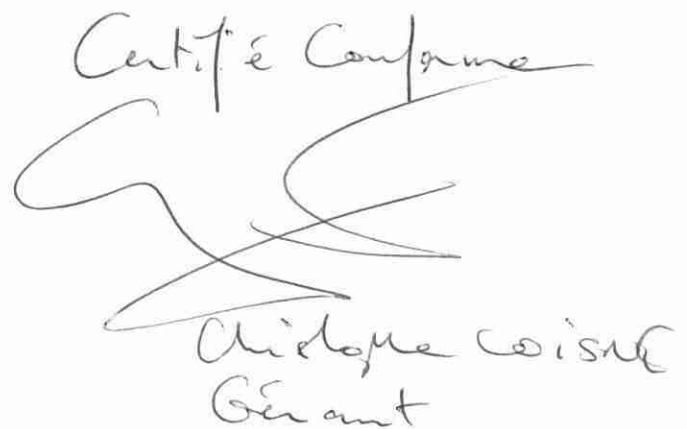 Certifié Conforme
Christophe COISNE
Gérant